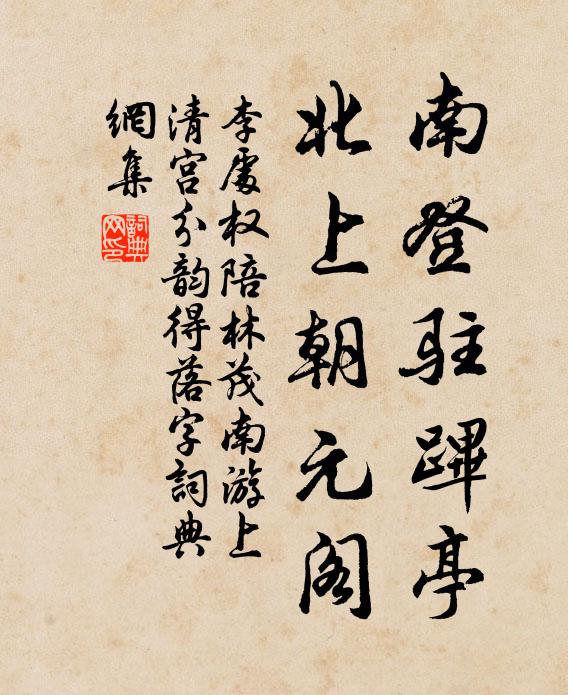 南登驻蹕亭
北上朝元阁
李處权陪林茂南游上
清宫分韵得落字詞典
網集
詞典
网印